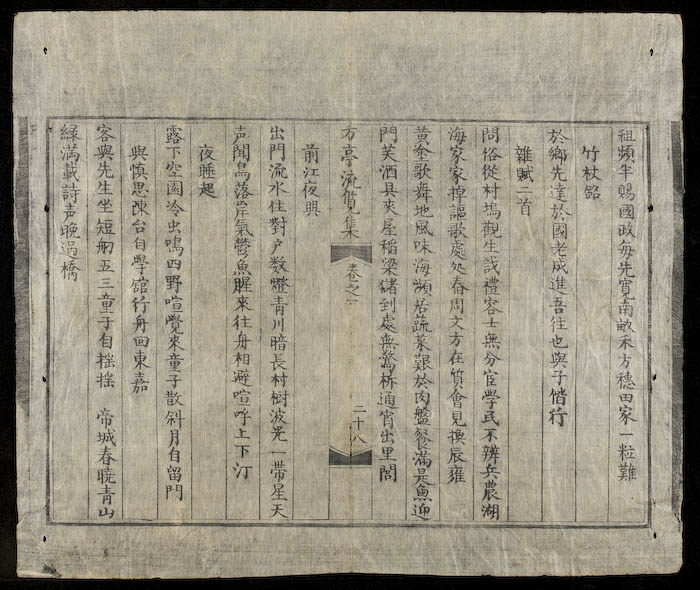 租頻半賜國政每先寬南畝禾方穗田家一粒難
竹杖銘
於鄉先達於國老成進吾往也與子偕行
雜賦二首
問俗從村塢觀生試禮客士無分宦學民不辨兵農湖
海家家棹謳歌處处春周文方在質會見換辰雍
黃童歌舞地風味海頻居蔬菜艱於肉盤飱滿是魚迎
門芙酒具夾屋稻粱儲到處無驚柝通宵出里閭
方亭流覽集 卷之六 二十八
前江夜興
出門流水住對户数燈青川暗長村樹波光一帶星天
声聞鳥落岸氣鬱魚腥來往舟相避喧呼上下汀
夜睡起
露下空園冷虫鳴四野喧覺來童子散斜月自留門
與慎思陳台自學舘行舟回東嘉
客與先生坐短舠五三童子自摇摇 帝城春曉青山
緑満載詩声晚過橋